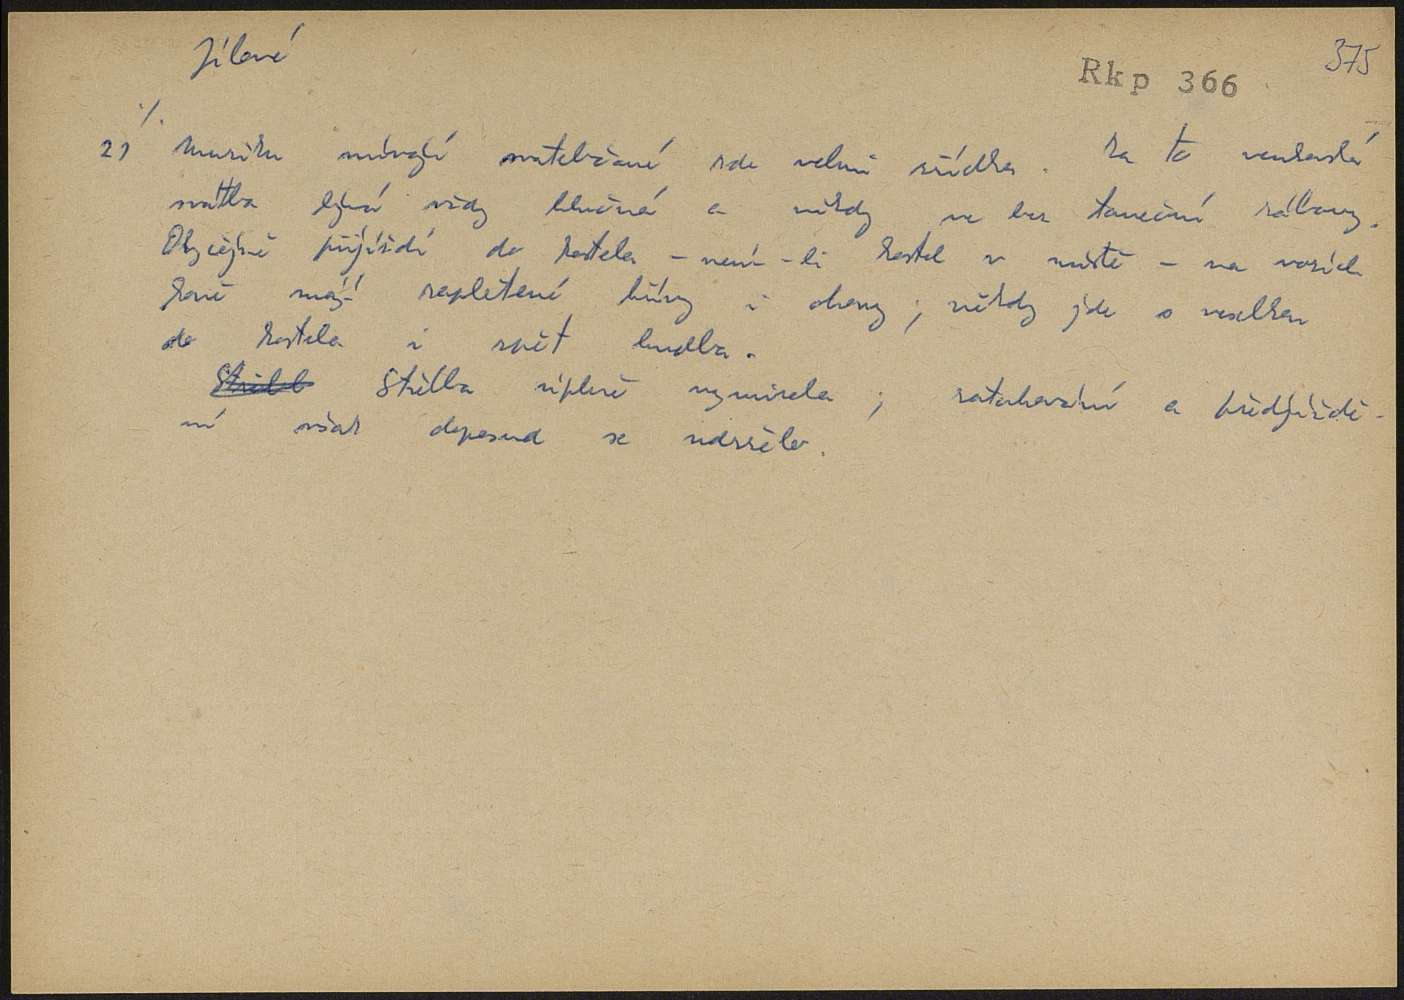 Jílové
Rkp 366
375
·/.
2) Muziku mívají svatebčané zde velmi zřídka. Za to venkovská
svatba bývá vždy hlučná a někdy ne bez taneční zábavy.
Obyčejně přijíždí do kostela – není-li kostel v místě – na vozích
koně mají zapletené hřívy i ohony; někdy jde s veselkou
do kostela i zpět hudba.
Střelb Střelba úplně vymizela; zatahování a předjíždě-
ní však doposud se udrželo.